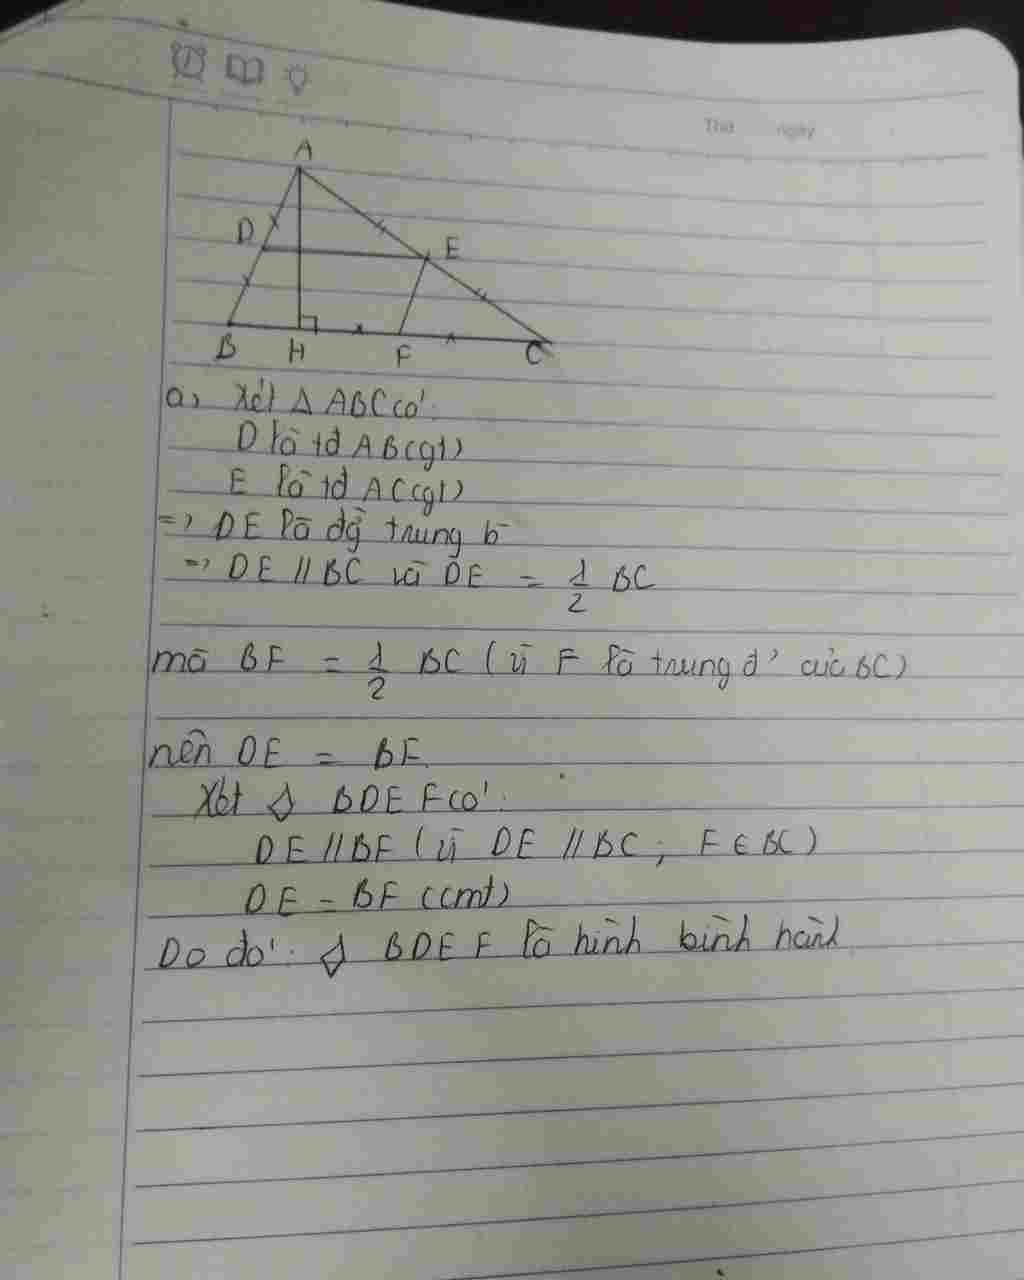 Thứ ngày
A
D
E
B H F C
a, Xét Δ ABC có:
D là tđ AB (gt)
E là tđ AC (gt)
=> DE là đg trung b
=> DE // BC và DE = 1/2 BC
mà BF = 1/2 BC (vì F là trung đ' của BC)
nên DE = BF.
Xét ◊ BDEF có:
DE // BF (vì DE // BC ; F ∈ BC)
DE = BF (cmt)
Do đó: ◊ BDEF là hình bình hành